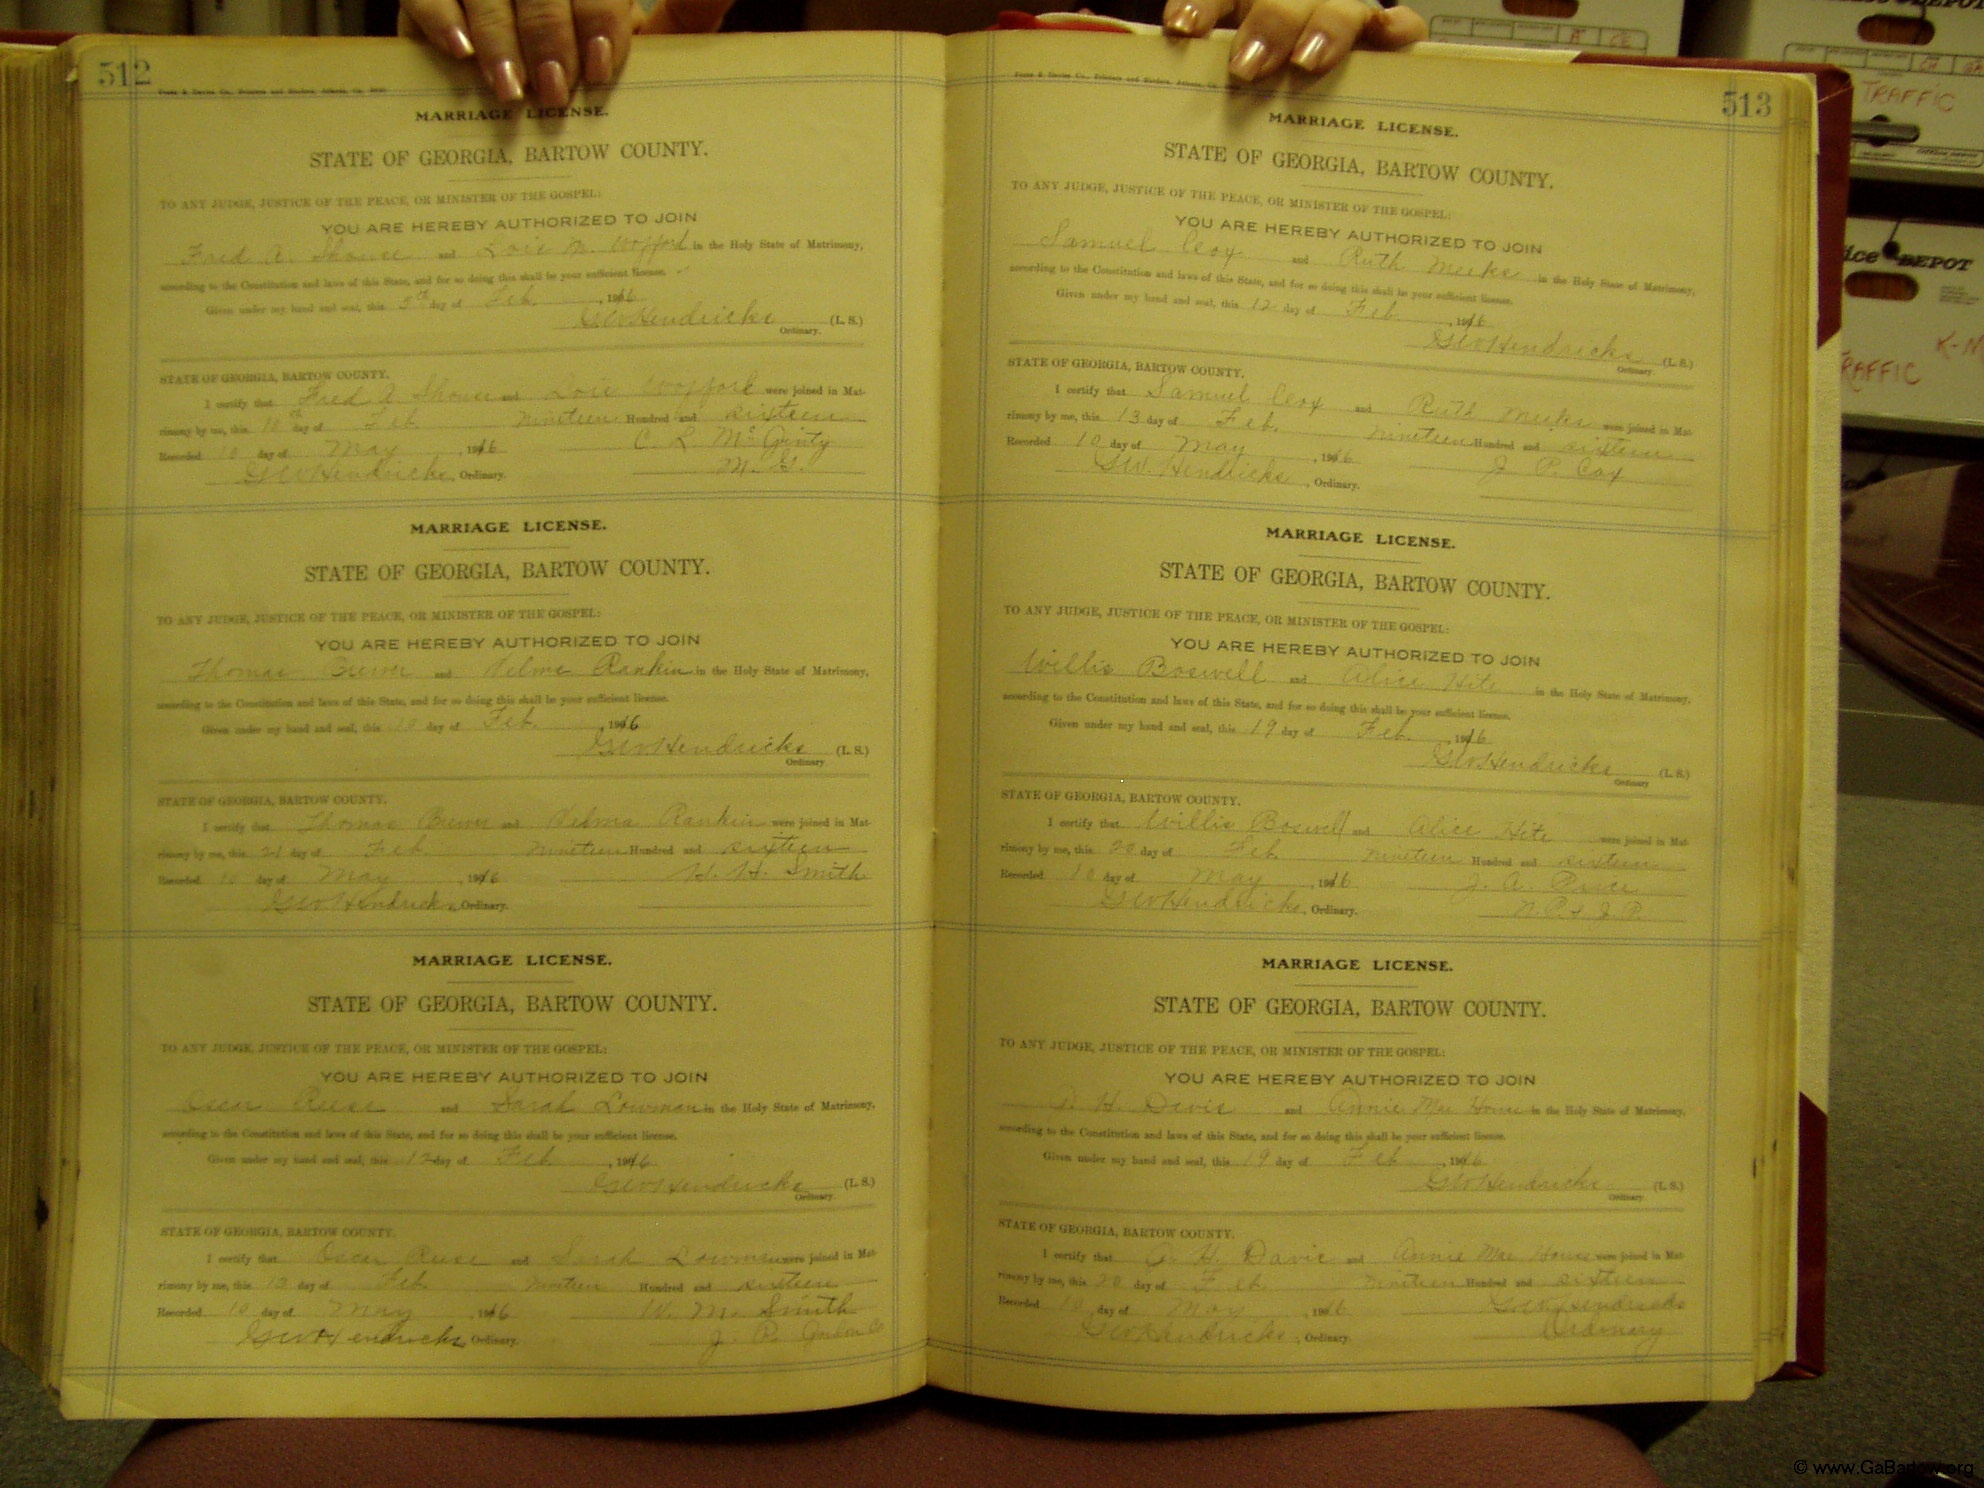 512
MARRIAGE LICENSE.
STATE OF GEORGIA, BARTOW COUNTY.
TO ANY JUDGE, JUSTICE OF THE PEACE, OR MINISTER OF THE GOSPEL:
YOU ARE HEREBY AUTHORIZED TO JOIN
Fred A. and Lois M. Wofford in the Holy State of Matrimony,
according to the Constitution and laws of this State, and for so doing this shall be your sufficient license.
Given under my hand and seal, this day of Feb. , 1916
GW Hendricks (L. S.)
Ordinary.
STATE OF GEORGIA, BARTOW COUNTY.
I certify that Fred A and Lois Wofford were joined in Mat-
rimony by me, this day of Feb nineteen Hundred and sixteen
Recorded 10 day of May , 1916 C. L. McGinty
GW Hendricks, Ordinary. M. G.
MARRIAGE LICENSE.
STATE OF GEORGIA, BARTOW COUNTY.
TO ANY JUDGE, JUSTICE OF THE PEACE, OR MINISTER OF THE GOSPEL:
YOU ARE HEREBY AUTHORIZED TO JOIN
Thomas and Velma Rankin in the Holy State of Matrimony,
according to the Constitution and laws of this State, and for so doing this shall be your sufficient license.
Given under my hand and seal, this 10 day of Feb. , 1916
GW Hendricks (L. S.)
Ordinary.
STATE OF GEORGIA, BARTOW COUNTY.
I certify that Thomas and Velma Rankin were joined in Mat-
rimony by me, this 21 day of Feb nineteen Hundred and sixteen
Recorded 10 day of May , 1916 H. H. Smith
GW Hendricks, Ordinary.
MARRIAGE LICENSE.
STATE OF GEORGIA, BARTOW COUNTY.
TO ANY JUDGE, JUSTICE OF THE PEACE, OR MINISTER OF THE GOSPEL:
YOU ARE HEREBY AUTHORIZED TO JOIN
Oscar Reese and Sarah Lowman in the Holy State of Matrimony,
according to the Constitution and laws of this State, and for so doing this shall be your sufficient license.
Given under my hand and seal, this 12 day of Feb , 1916
GW Hendricks (L. S.)
Ordinary.
STATE OF GEORGIA, BARTOW COUNTY.
I certify that Oscar Reese and Sarah Lowman were joined in Mat-
rimony by me, this 12 day of Feb nineteen Hundred and sixteen
Recorded 10 day of May , 1916 W. M. Smith
GW Hendricks, Ordinary. J. P. Gordon Co
513
MARRIAGE LICENSE.
STATE OF GEORGIA, BARTOW COUNTY.
TO ANY JUDGE, JUSTICE OF THE PEACE, OR MINISTER OF THE GOSPEL:
YOU ARE HEREBY AUTHORIZED TO JOIN
Samuel Cox and Ruth Meeks in the Holy State of Matrimony,
according to the Constitution and laws of this State, and for so doing this shall be your sufficient license.
Given under my hand and seal, this 12 day of Feb. , 1916
GW Hendricks (L. S.)
Ordinary.
STATE OF GEORGIA, BARTOW COUNTY.
I certify that Samuel Cox and Ruth Meeks were joined in Mat-
rimony by me, this 13 day of Feb. nineteen Hundred and sixteen
Recorded 10 day of May , 1916 J. P. Cox
GW. Hendricks, Ordinary.
MARRIAGE LICENSE.
STATE OF GEORGIA, BARTOW COUNTY.
TO ANY JUDGE, JUSTICE OF THE PEACE, OR MINISTER OF THE GOSPEL:
YOU ARE HEREBY AUTHORIZED TO JOIN
Willis Boswell and Alice Hite in the Holy State of Matrimony,
according to the Constitution and laws of this State, and for so doing this shall be your sufficient license.
Given under my hand and seal, this 19 day of Feb. , 1916
GW Hendricks (L. S.)
Ordinary
STATE OF GEORGIA, BARTOW COUNTY.
I certify that Willis Boswell and Alice Hite were joined in Mat-
rimony by me, this 20 day of Feb. nineteen Hundred and sixteen
Recorded 10 day of May , 1916 J. A.
GW Hendricks, Ordinary. N. P. & J. P.
MARRIAGE LICENSE.
STATE OF GEORGIA, BARTOW COUNTY.
TO ANY JUDGE, JUSTICE OF THE PEACE, OR MINISTER OF THE GOSPEL:
YOU ARE HEREBY AUTHORIZED TO JOIN
H. Davis and Annie Mae in the Holy State of Matrimony,
according to the Constitution and laws of this State, and for so doing this shall be your sufficient license.
Given under my hand and seal, this 19 day of Feb , 1916
GW Hendricks (L. S.)
Ordinary
STATE OF GEORGIA, BARTOW COUNTY.
I certify that H. Davis and Annie Mae were joined in Mat-
rimony by me, this 20 day of Feb. nineteen Hundred and sixteen
Recorded 10 day of May , 1916 GW. Hendricks
GW Hendricks, Ordinary. Ordinary
TRAFFIC
DEPOT
K-N
© www.GaBartow.org